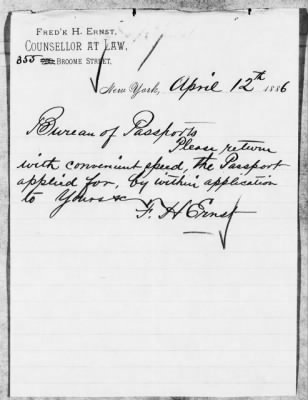 FRED'K H. ERNST,
COUNSELLOR AT LAW,
355 BROOME STREET,
New York, April 12th 1886
Bureau of Passports
Please return
with convenient speed, the Passport
applied for, by within application
to Yours &c
F. H Ernst